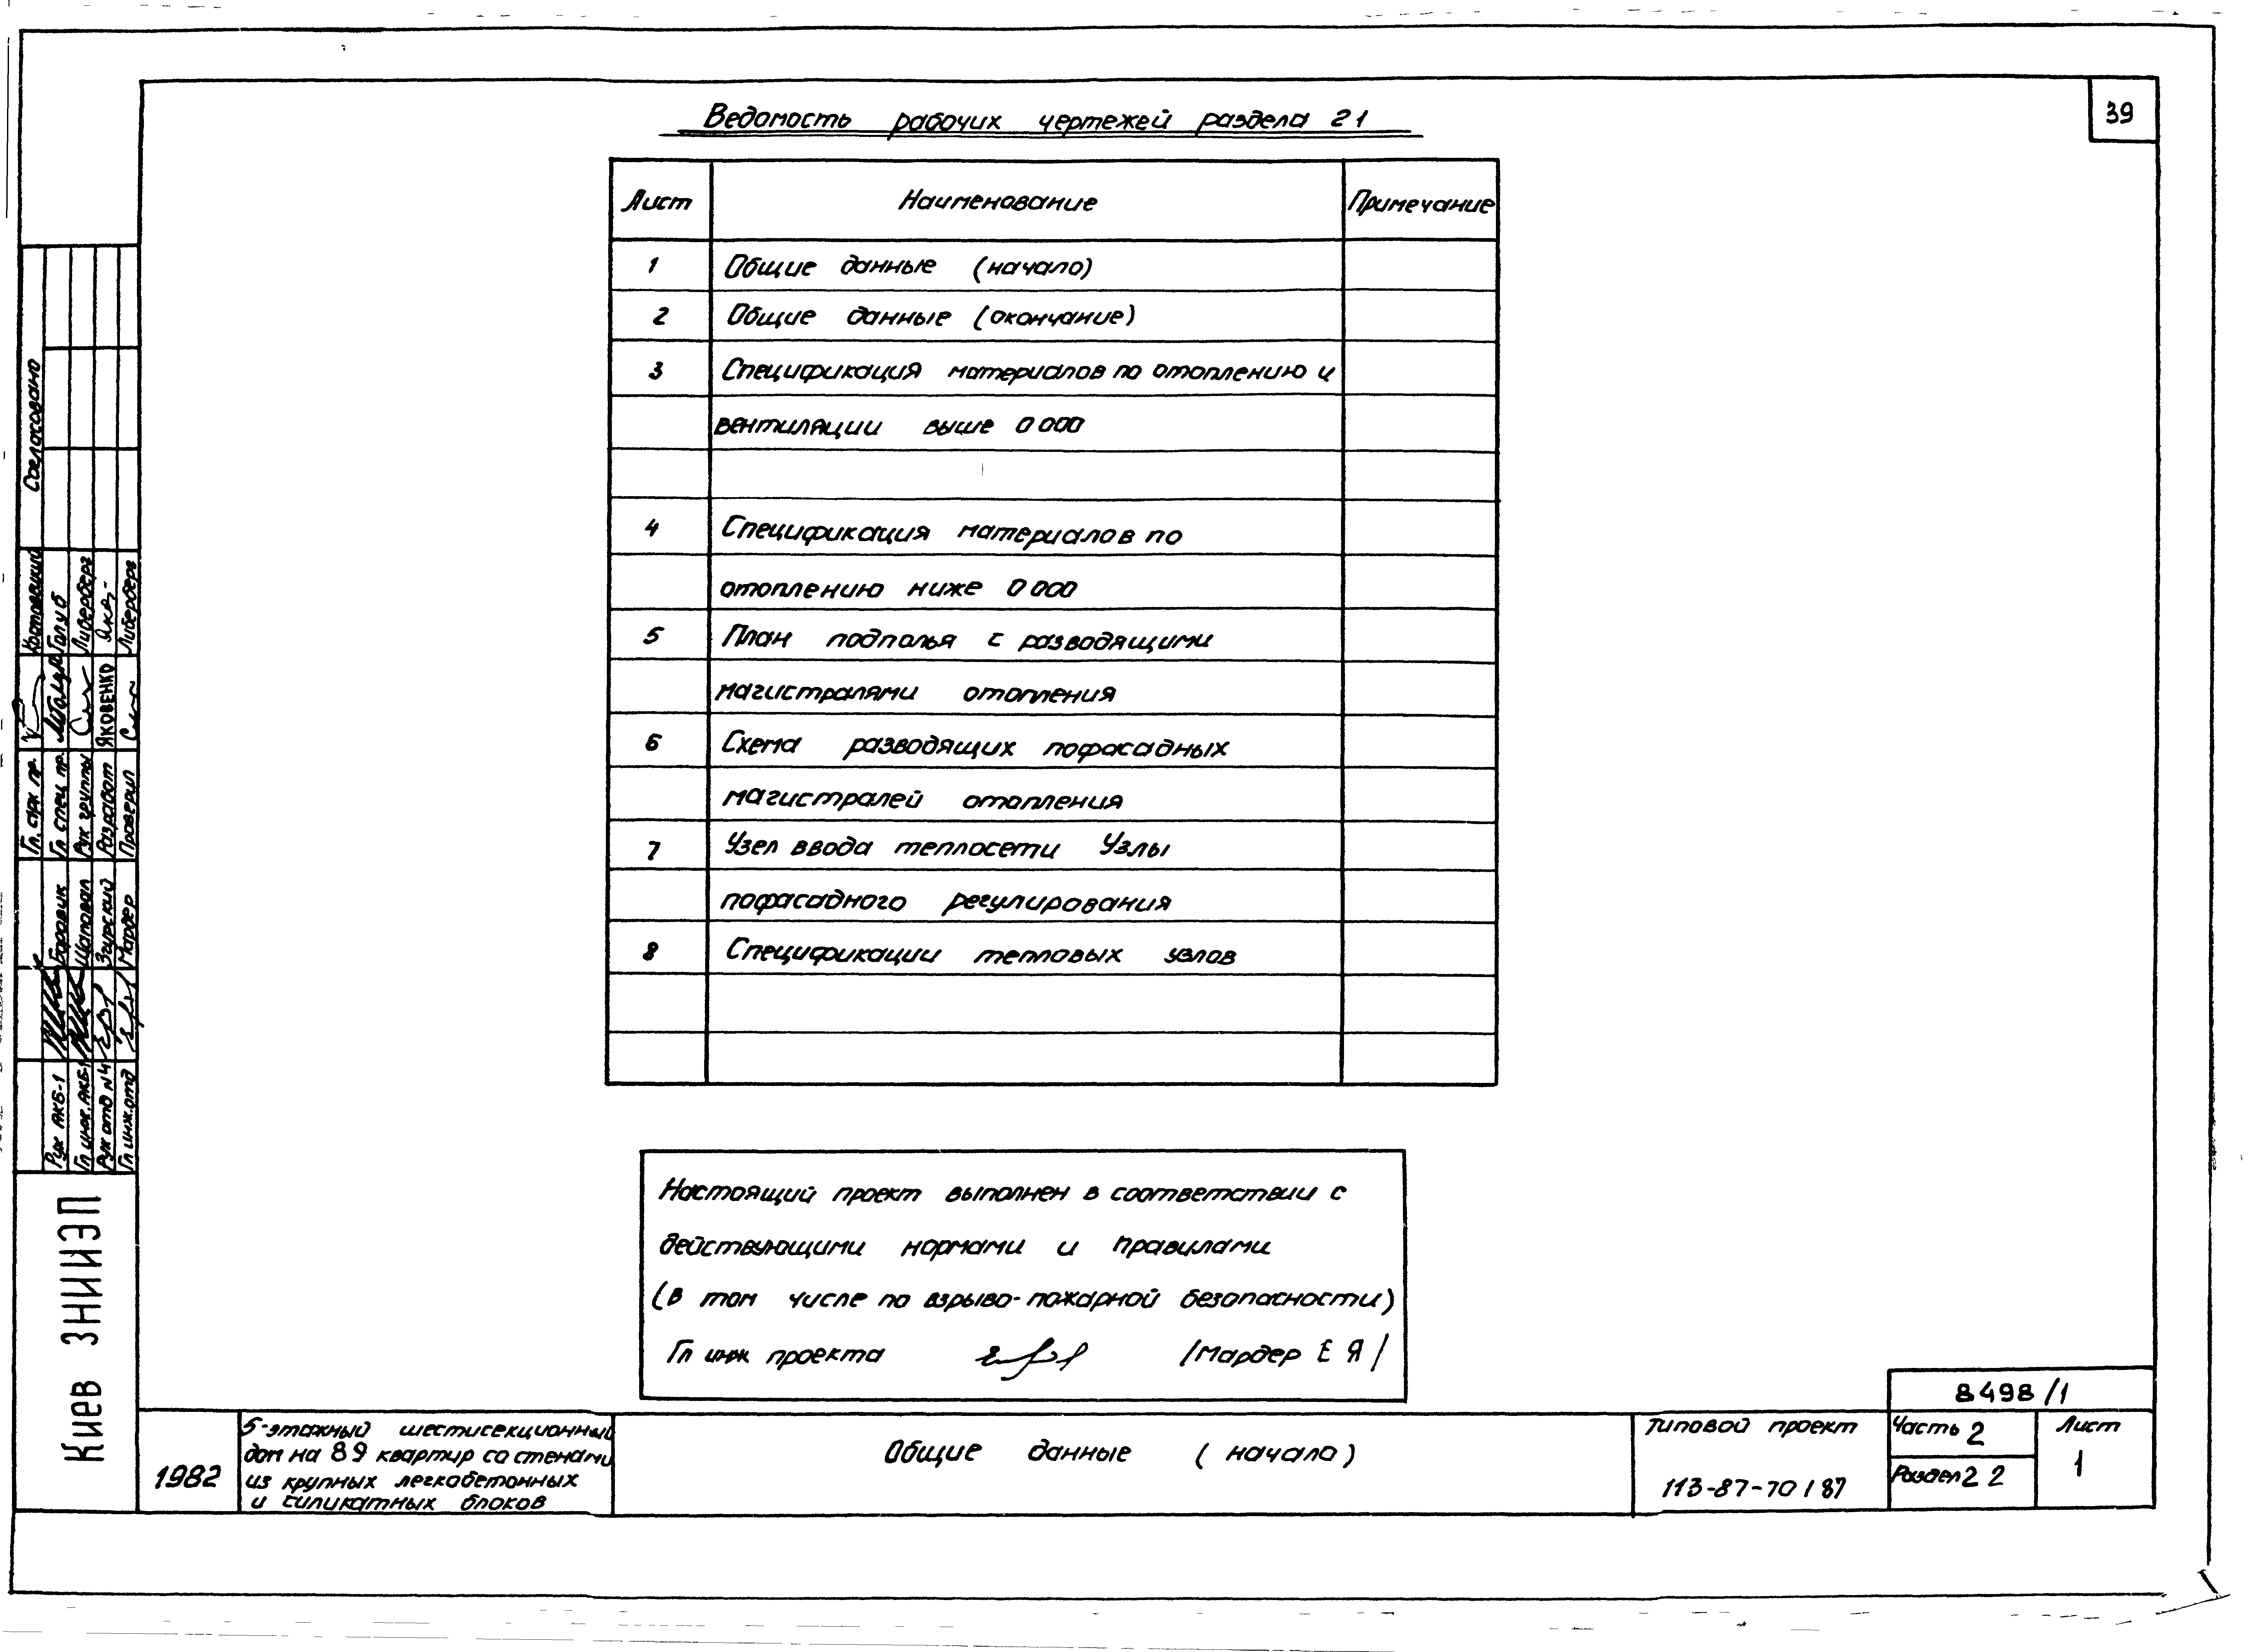 39
Ведомость рабочих чертежей раздела 2 1
Лист Наименование Примечание
1 Общие данные (начало)
2 Общие данные (окончание)
3 Спецификация материалов по отоплению и
вентиляции выше 0 000
4 Спецификация материалов по
отоплению ниже 0 000
5 План подполья с разводящими
магистралями отопления
6 Схема разводящих пофасадных
магистралей отопления
7 Узел ввода теплосети Узлы
пофасадного регулирования
8 Спецификации тепловых узлов
Настоящий проект выполнен в соответствии с
действующими нормами и правилами
(в том числе по взрыво-пожарной безопасности)
Гл инж проекта /Мардер Е Я/
Согласовано
Гл. арх пр.
Гл спец пр. Голуб
Рук группы Либерберг
Разработ ЯКОВЕНКО
Проверил Либерберг
Рук АКБ-1 Боровик
Гл инж. АКБ-1 Шаповал
Рук отд N4 Згурский
Гл инж. отд Мардер
Киев ЗНИИЭП
1982
5-этажный шестисекционный
дом на 89 квартир со стенами
из крупных легкобетонных
и силикатных блоков
Общие данные (начало)
типовой проект
113-87-70/87
8498/1
Часть 2
Раздел 2 2
Лист
1